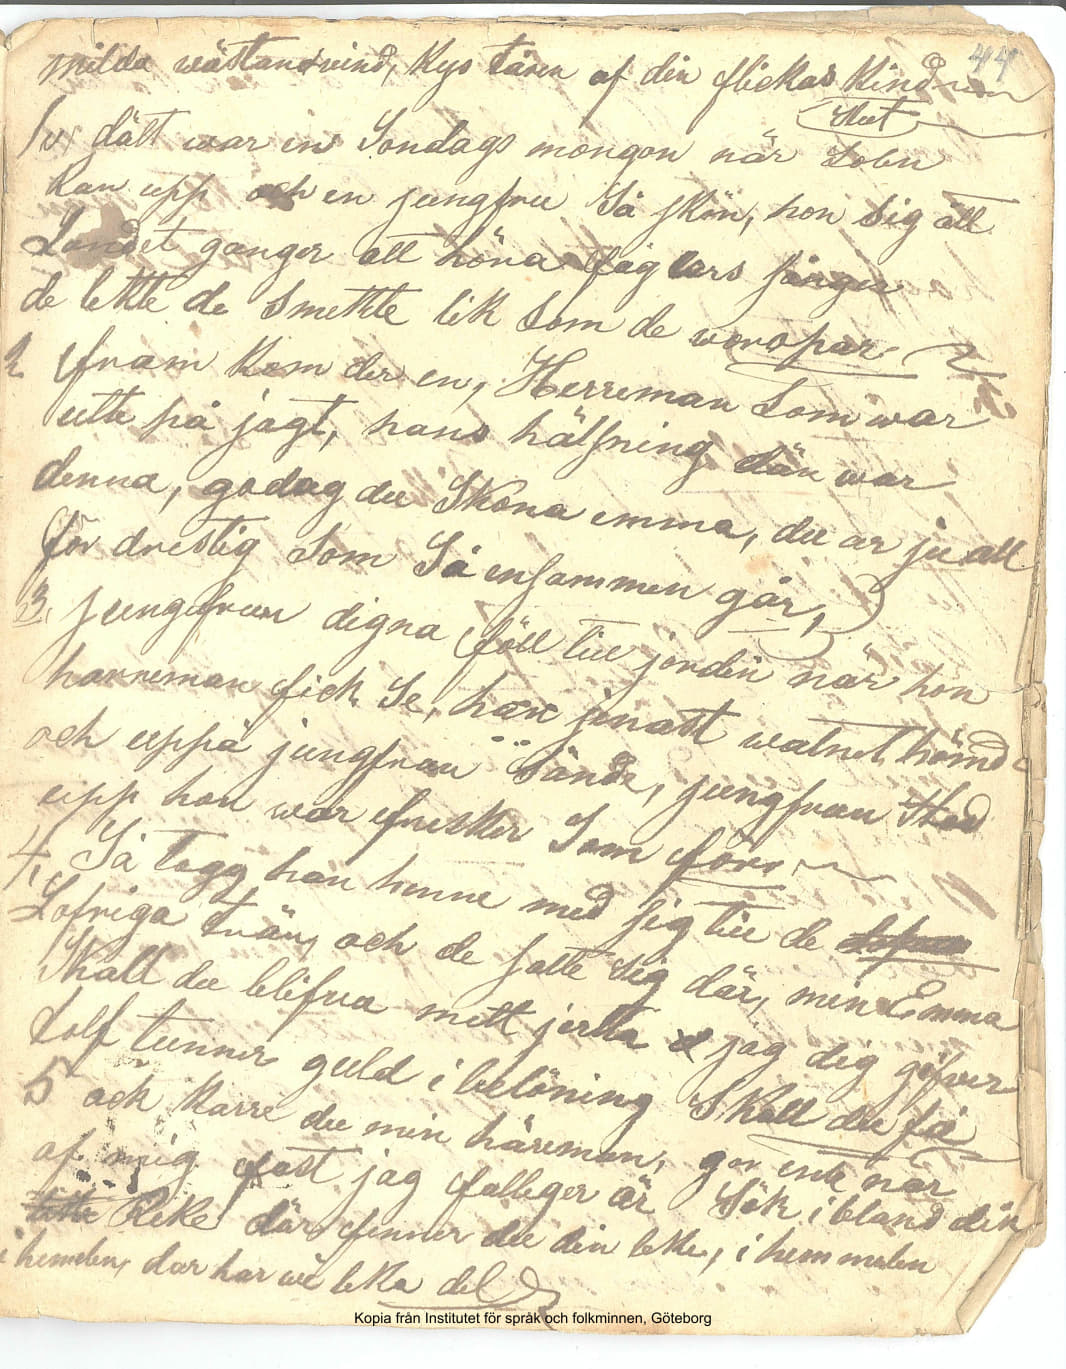 milda wästanwind, kys tåren af din flickas kind
44
Slut
1 v dält war en Söndags mongon när Solen
Ran upp och en jungfru Så skön, hon sig åtl
Landet ganger att höra foglars sången
de lekte de Smekte lik Som de woro par.
2 fram kom der en, Herreman Som war
utte på jagt, hans hälsning dän war
denna, godag du Sköna emma, du ar ju all
för drestig Som Så ensammen går,
3. jungfrun digna föll till jorden när hon
harreman fick Se, han jenast watnet hämd
och uppå jungfrun Sände, jungfrun Stod
upp hon war frisker Som förr
4, Så togg han henne med sig till de
Lofriga trän, och de satte sig där, min Emma
Skall du blifva mitt jerta jag dig gifver
tolf tunner guld i belöning Skall du få
5 ack karre du min häreman, gor ente nar
af mig fast jag fattiger är Sök i bland din
Like där fenner du din leke, i hemmelen
i hemelen, dar har wi leka del
Kopia från Institutet för språk och folkminnen, Göteborg